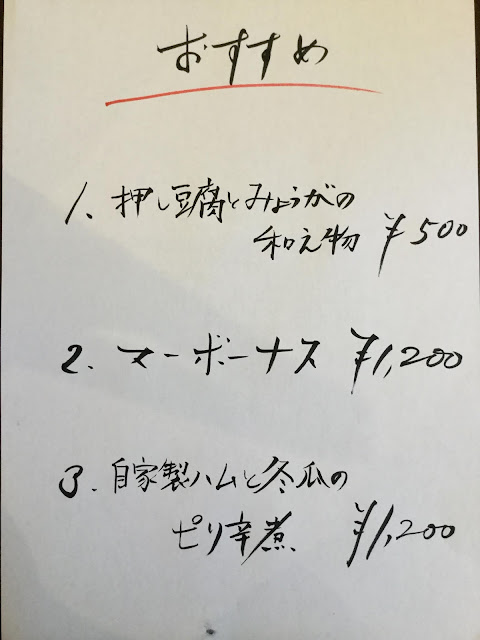 おすすめ
1、押し豆腐とみょうがの
和え物 ¥500
2. マーボーナス ¥1,200
3. 自家製ハムと冬瓜の
ピリ辛煮 ¥1,200